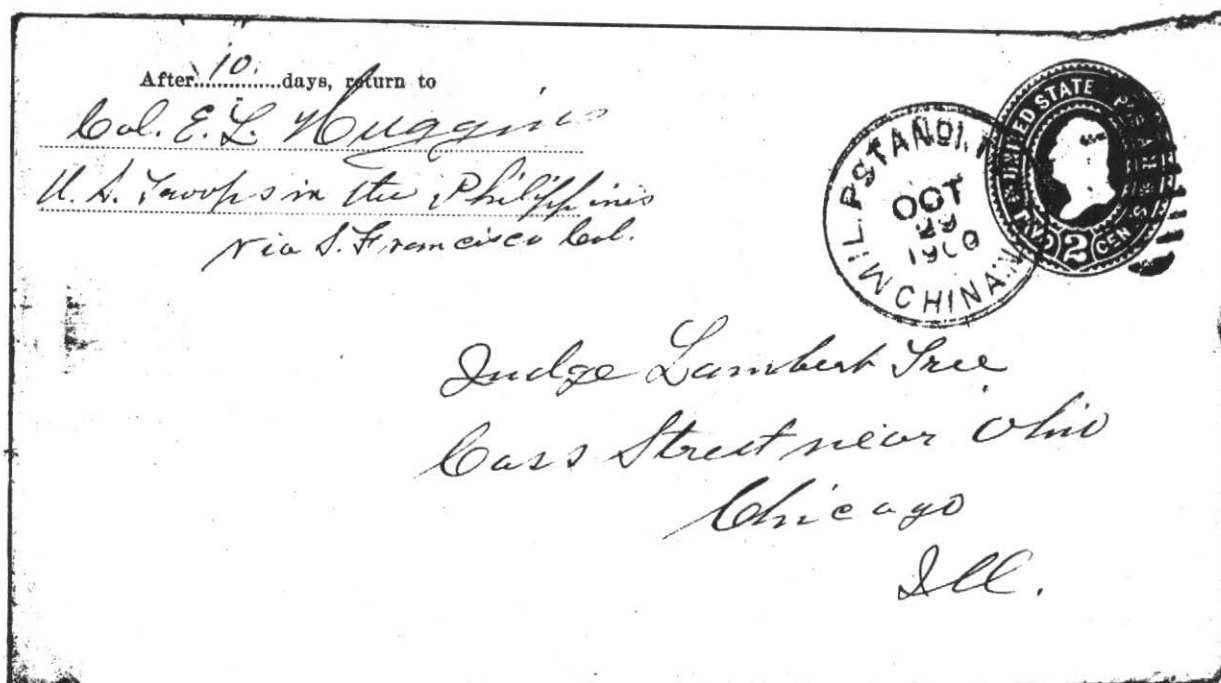 After 10. days, return to
Col. E. L. Huggins
U. S. Troops in the Philippines
via S. Francisco Cal.
MIL. P. STA. NO. 1, CHINA.
OCT
29
1900
UNITED STATES
2 CENTS
Judge Lambert Tree
Cass Street near Ohio
Chicago
Ill.